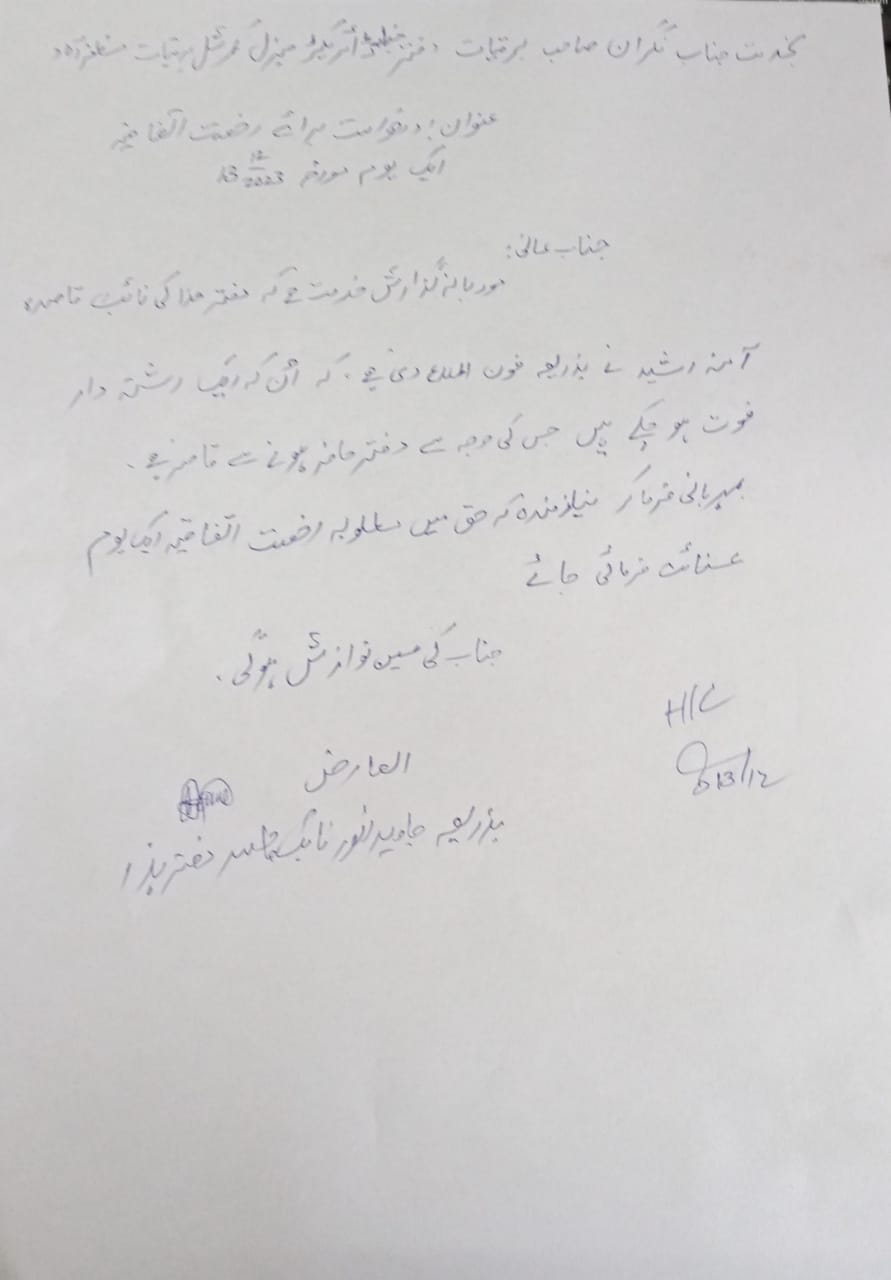 بخدمت جناب نگران صاحب برقیات دفتر ڈائریکٹر جنرل کمرشل برقیات مظفرآباد
عنوان: درخواست برائے رخصت اتفاقیہ
ایک یوم مورخہ 13 12/2023
جناب عالی:
مودبانہ گذارش خدمت ہے کہ دفتر ھذا کی نائب قاصدہ
آمنہ رشید نے بذریعہ فون اطلاع دی ہے۔ کہ اُن کہ ایک رشتہ دار
فوت ہو چکے ہیں جس کی وجہ سے دفتر حاضر ہونے سے قاصر ہے۔
مہربانی فرما کر نیازمندہ کہ حق میں مطلوبہ رخصت اتفاقیہ ایک یوم
عنائت فرمائی جائے
جناب کی عین نوازش ہوگی۔
H/C
13/12
العارض
بذریعہ جاوید انور نائب قاصد دفتر ہذا